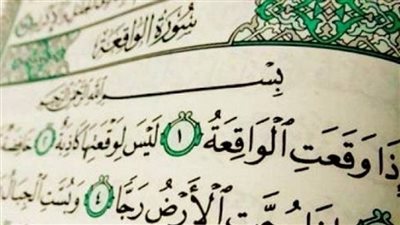 سُورَةُ الوَاقِعَةِ
بِسْمِ اللَّهِ الرَّحْمَٰنِ الرَّحِيمِ
إِذَا وَقَعَتِ ٱلْوَاقِعَةُ ١ لَيْسَ لِوَقْعَتِهَا كَاذِبَةٌ ٢
ٱلْأَرْضُ رَجًّا ٤ وَبُسَّتِ ٱلْجِبَالُ